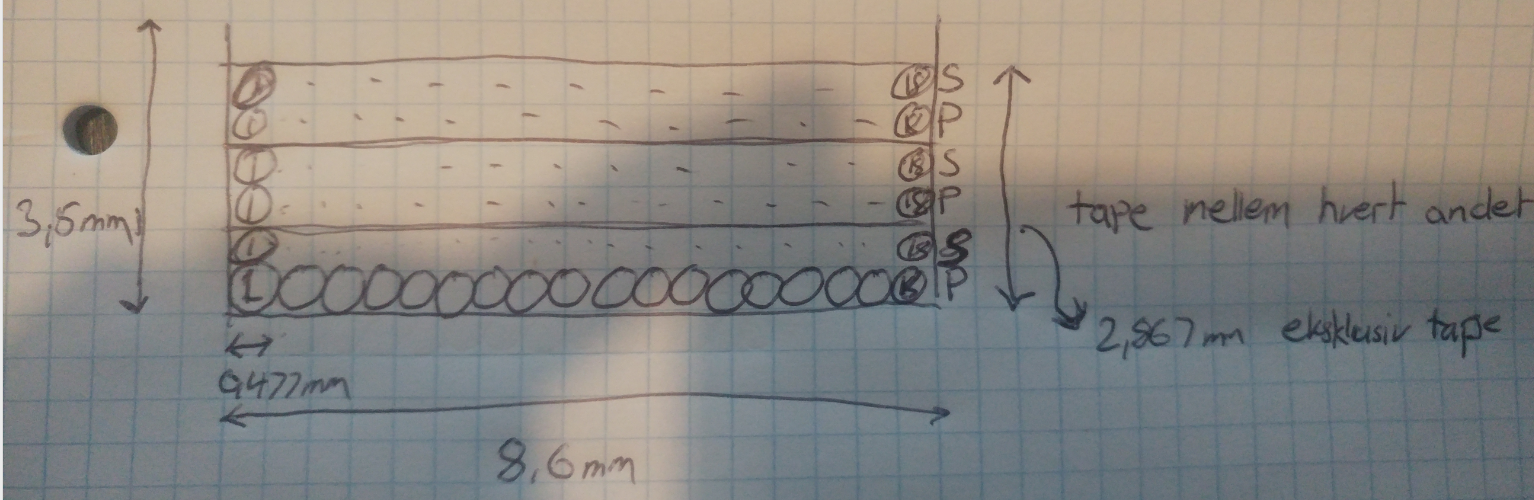 18 S
1 18 P
1 18 S
1 18 P
1 18 S
1 18 P
3,5mm
tape mellem hvert andet
2,867mm eksklusiv tape
0,477mm
8,6mm